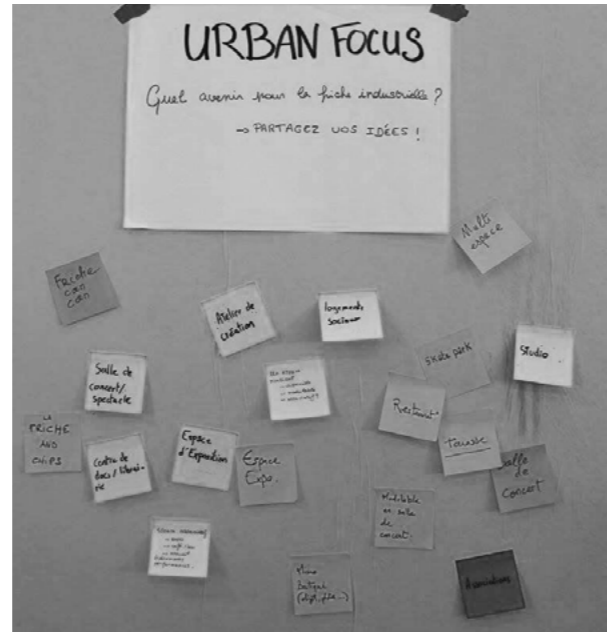 URBAN FOCUS
Quel avenir pour la friche industrielle ?
→ PARTAGEZ VOS IDÉES !
Multi
espace
Friche
can
can
Atelier de
création
logements
sociaux
Skate park
Studio
Salle de
concert/
spectacle
Restaurant
LA
FRICHE
AND
CHIPS
Centre de
docs/librai-
rie
Espace
d'Exposition
Espace
Expo.
Salle
de
Concert
Modulable
en salle
de
concert.
Boutique
Associations